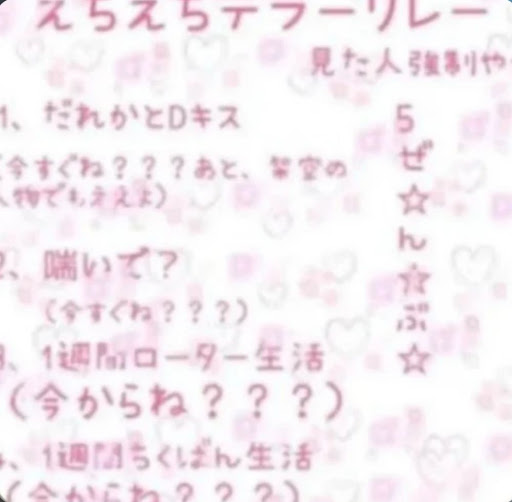 えちえちテラーリレー
見た人強制や
1、だれかとDキス
(今すぐね？？？あと、架空の
人物でもええよ)
2、喘いで？
(今すぐね？？？)
3、1週間ローター生活
(今からね？？？)
、1週間ちくばん生活
(今からね？？？)
5ぜ☆ん☆ぶ☆